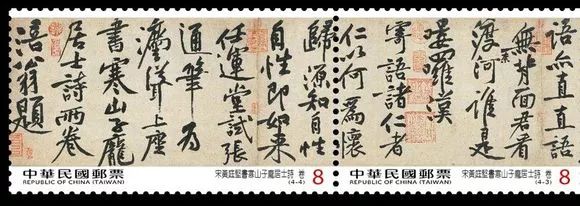 語亦直直語
無背面君看
渡河誰是
嘍羅漢
寄語諸仁者
仁以何為懷
歸源知自性
自性即如來
任運堂試張
通筆為
灋聳上座
書寒山子龐
居士詩兩卷
涪翁題
中華民國郵票
REPUBLIC OF CHINA (TAIWAN)
宋黃庭堅書寒山子龐居士詩 卷
(4-4)
8
中華民國郵票
REPUBLIC OF CHINA (TAIWAN)
宋黃庭堅書寒山子龐居士詩 卷
(4-3)
8